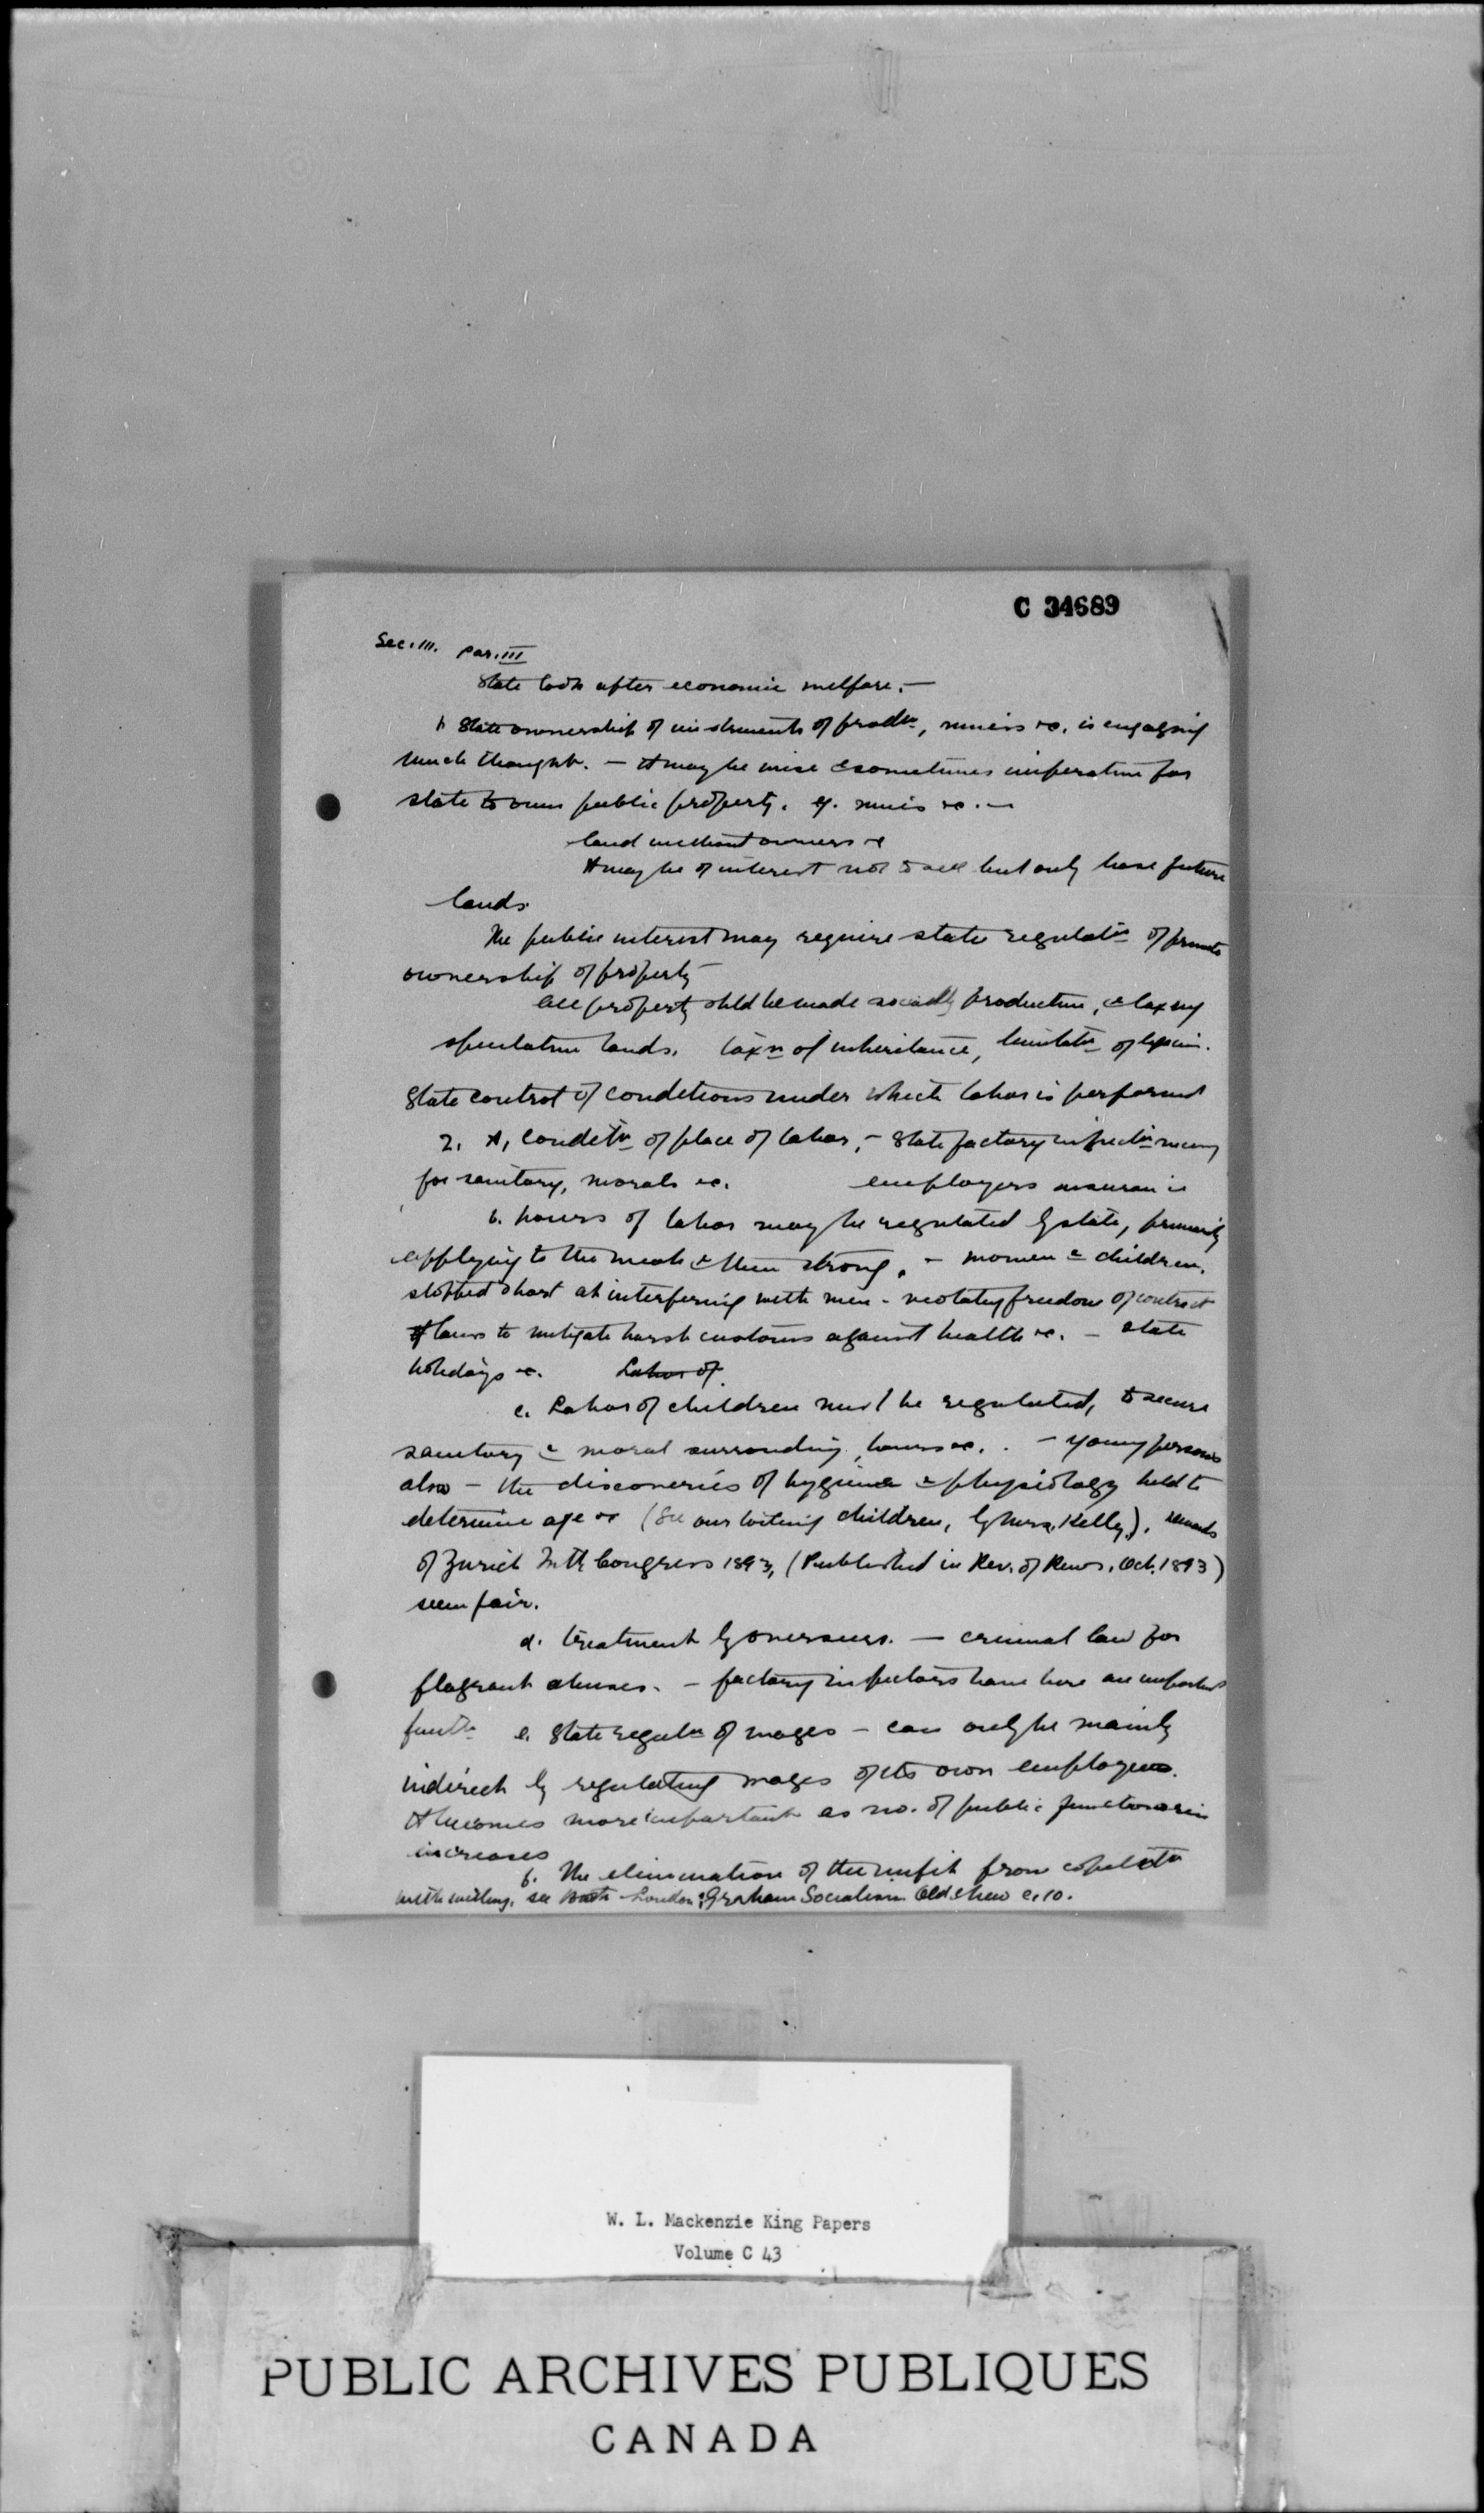 C 34689
Sec. III. Par. III
State look after economic welfare. —
1. State ownership of instruments of prodtn, mines &c. is engaging
much thought. — It may be wise & sometimes imperative for
state to own public property. eg. mines &c. —
land without owners &
It may be of interest not to sell but only lease future
lands.
The public interest may require state regulatn of private
ownership of property
All property shld be made socially productive, & taxing
speculative lands. taxn of inheritance, limitatn of
State control of conditions under which labor is performed
2. A, Conditn of place of labor, — State factory inspectn necessary
for sanitary, morals &c. employers insurance
b. hours of labor may be regulated by state, primarily
applying to the weak & then strong. — women & children.
stopped short at interfering with men - violating freedom of contract
laws to mitigate harsh customs against health &c. — state
holidays &c. Labor of
c. Labor of children must be regulated, to secure
sanitary & moral surrounding, hours &c. — young persons
also — the discoveries of hygiene & physiology held to
determine age &c (See our toiling children, by Mrs. Kelly),
of Zurich Intl Congress 1893, (Published in Rev. of Revs. Oct. 1893)
seem fair.
d. treatment by overseers. — criminal law for
flagrant abuses. — factory inspectors have here an important
functn e. State reguln of wages — can only be mainly
indirect by regulating wages of its own employees.
It becomes more important as no. of public functionaries
increases
f. The elimination of the unfit from competitn
with willing, see Booth London; Graham Socialism Old & New c. 10.
W. L. Mackenzie King Papers
Volume C 43
PUBLIC ARCHIVES PUBLIQUES
CANADA